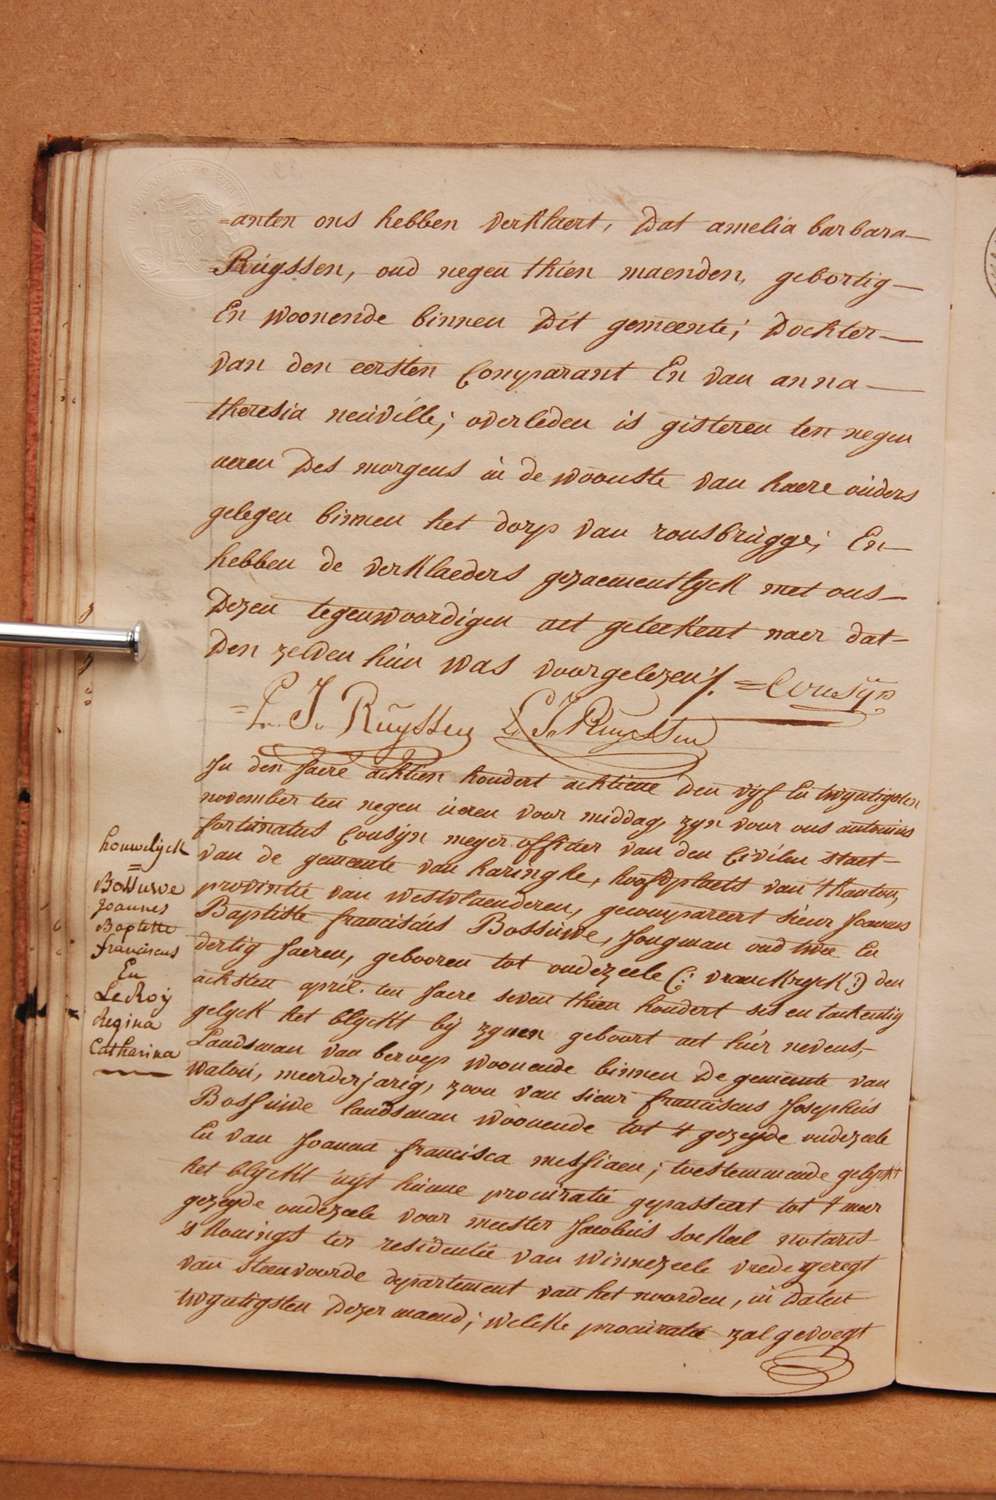 =anten ons hebben verklaert, Dat amelia barbara—
Ruÿssen, oud negen thien maenden, gebortig—
En woonende binnen Dit gemeente; Dochter—
van den eersten Comparant En van anna—
theresia neuville; overleden is gisteren ten negen
ueren Des morgens in de woonste van haere ouders
gelegen binnen het dorp van rousbrugge; En—
hebben de verklaeders gezaementlijck met ons—
Dezen tegenwoordigen act geteekent naer dat—
Den zelven hun was voorgelezen ./. =Cousÿn
= P. J. Ruÿssen L. J. Ruyssen
In den Jaere achtien hondert achtiene den vijf En twyntigsten
november ten negen ueren voor middag, zyn voor ons antonius
fortunatus Cousÿn meyer officier van den Civilen staet—
van de gemeente van haringhe, hoofdplaets van 't kanton,
provintie van westvlaenderen, gecompareert sieur Joannes
Baptiste franciscus Bossuwe, Jongman oud twee En
dertig Jaeren, gebooren tot oudezeele (: vranckryck :) den
achsten april ten Jaere seven thien hondert ses en tachentig
gelyck het blyckt bij zynen geboort act hier nevens,—
Landsman van beroep woonende binnen De gemeente van
watou, meerderjarig, zoon van sieur franciscus Josephus
Bossuwe landsman woonende tot 't gezeyde oudezeele
En van Joanna francisca messiaen; toestemmende gelyck
het blyckt uyt hunne procuratie gepasseert tot 't meer
gezeyde oudezeele voor meester Jacobus sockeel notaris
's konings ter residentie van winnezeele vredegeregt
van steenvoorde departement van het noorden, in daten
twyntigsten Dezer maend; welcke procuratie zal gevoegt
houwelÿck
=
Bossuwe
Joannes
Baptiste
franciscus
En
Le Roÿ
Regina
Catharina